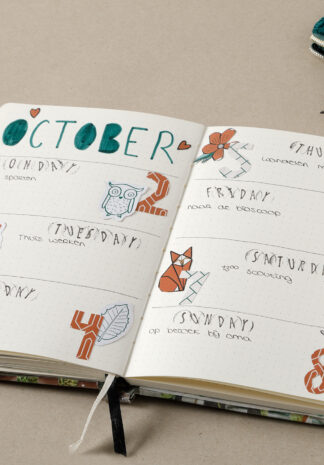 OCTOBER
(O)(N)(D)(A)(Y)
sporten
2
(T)(U)(E)(S)(D)(A)(Y)
Thuis werken
(D)(A)(Y)
4
(T)(H)(U)
5
FRYDAY)
naar de bioscoop
(S)(A)(T)(U)(R)(D)
scouting
(S)(U)(N)(D)(A)(Y)
op bezoek bij oma
8